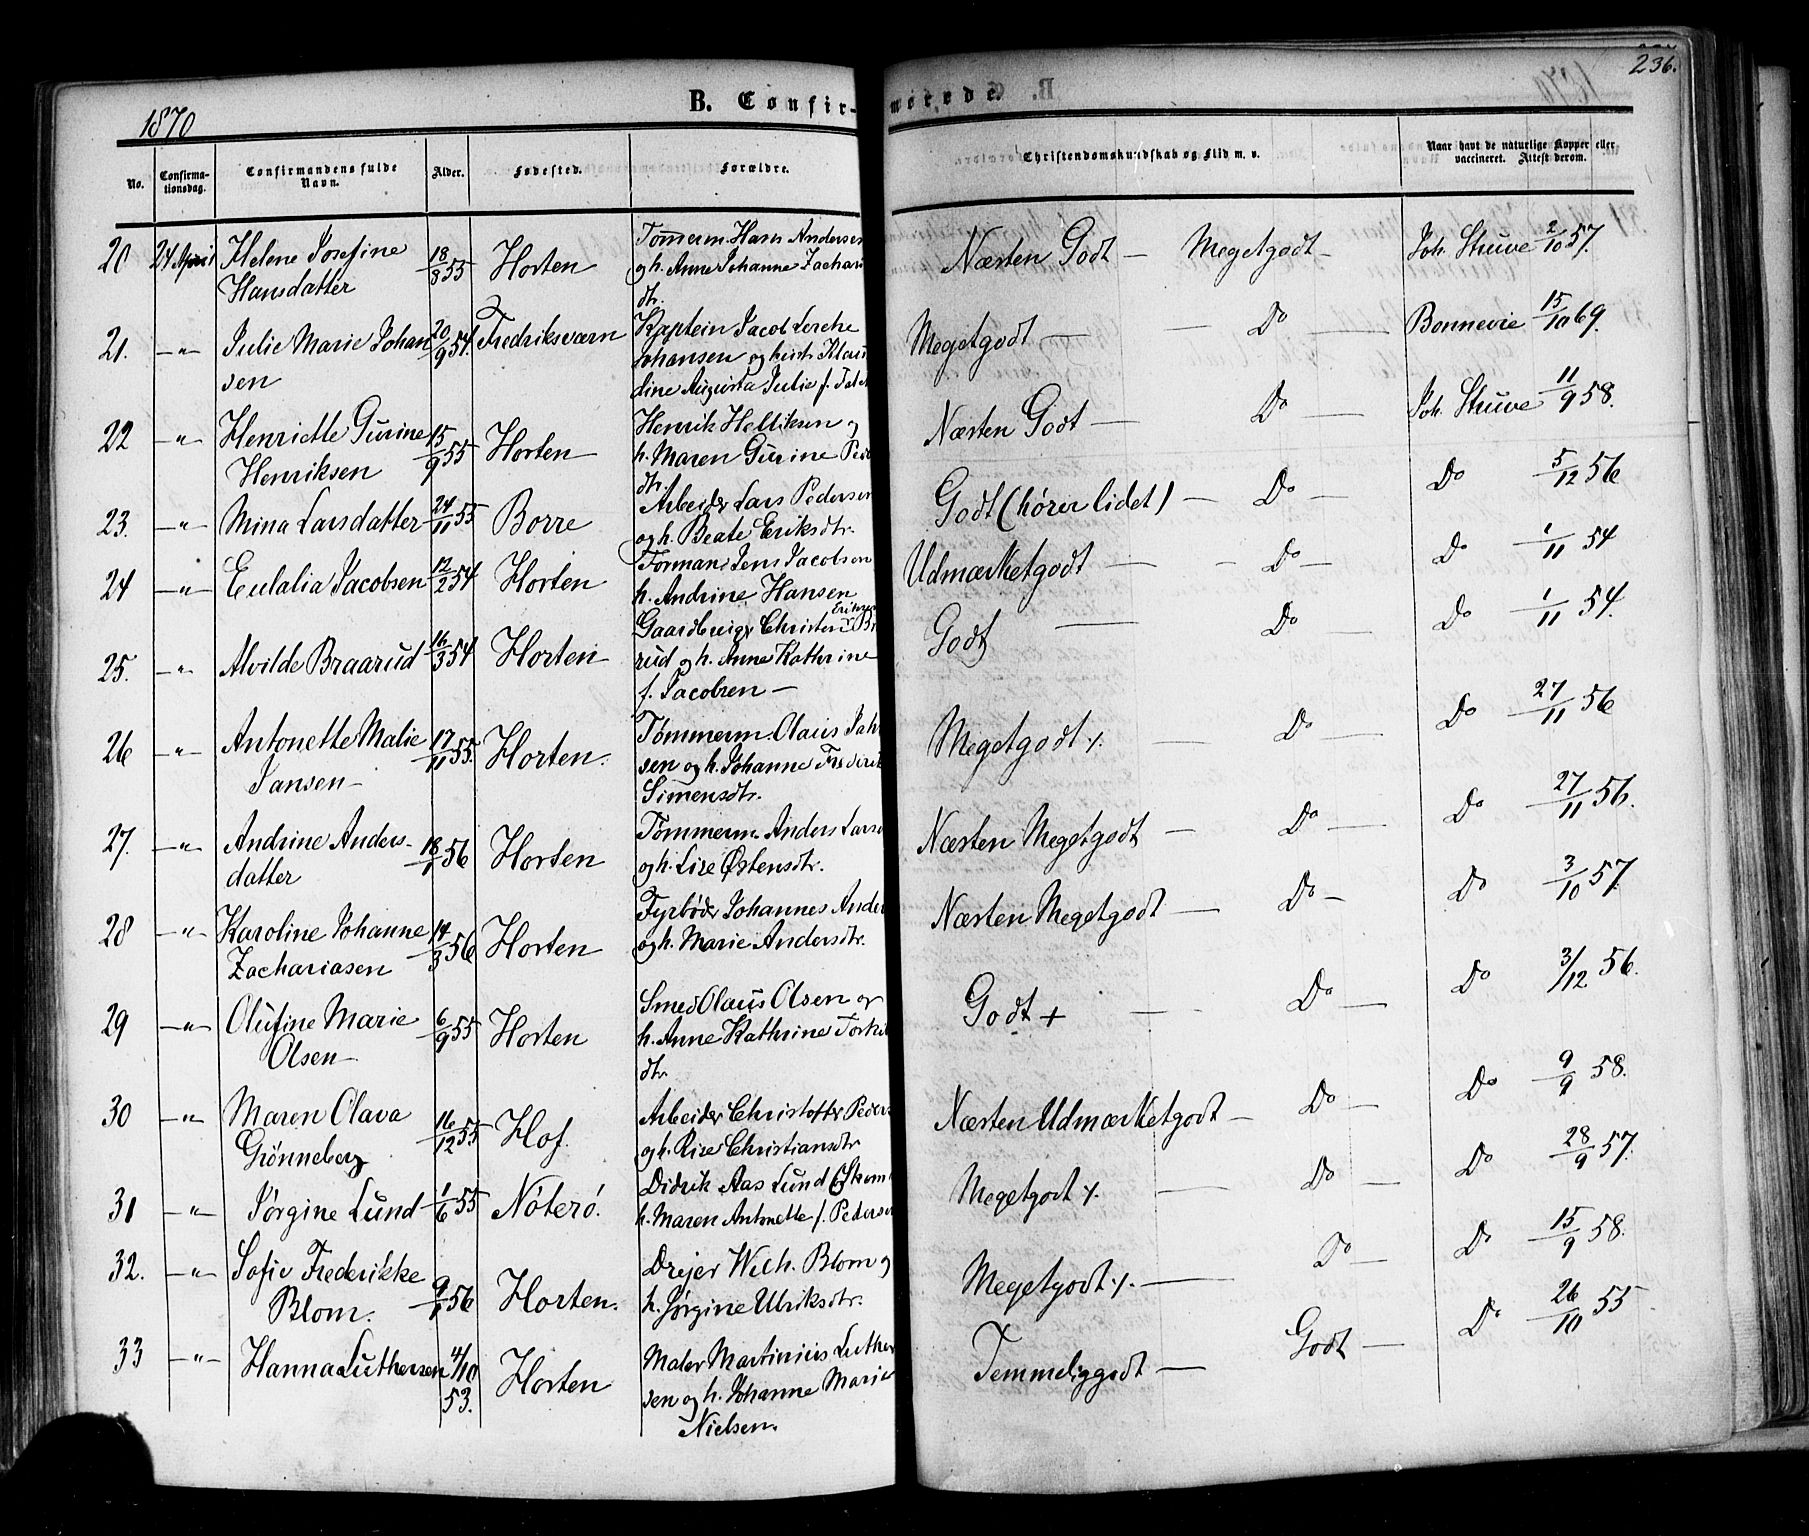 236.
1870
B. Confir-
merede.
No.
Confirma-
tionsdag.
Confirmandens fulde
Navn.
Alder.
Fødested.
Forældre.
Christendomskundskab og Flid m. v.
Naar havt de naturlige Kopper eller
vaccineret. Attest derom.
20 24 April Helene Josefine
Hansdatter
18/8 55 Horten
Tømmerm. Hans Andersen
og h. Anne Johanne Zachari
dtr.
Næsten Godt — Megetgodt — Joh. Struve 2/10 57.
21. —"— Julie Marie Johan
sen
20/9 54. Fredriksværn
Kaptein Jacob Lerche
Johansen og hustr. Klau
dine Augusta Julie f.
Megetgodt — — Do — Bonnevie 15/10 69.
22 —"— Henriette Gurine
Henriksen
15/9 55 Horten
Henrik Helliksen og
h. Maren Gurine Ped
dtr.
Næsten Godt — Do — Joh. Struve 11/9 58.
23. —"— Mina Larsdatter 24/11 55 Borre
Arbeider Lars Pedersen
og h. Beate Eriksdtr.
Godt (hører lidet) — Do — Do 5/12 56
24 —"— Eulalia Jacobsen 12/2 54 Horten
Formand Jens Jacobsen
h. Andrine Hansen
Udmærketgodt — - Do — Do 1/11 54
25. —"— Alvilde Braarud 16/3 54 Horten
Gaardbruger Christen Eriksen Br
rud og h. Anne Kathrine
f. Jacobsen —
Godt — Do — Do 1/11 54.
26 —"— Antonette Malie
Jansen —
17/11 55. Horten.
Tømmerm. Olaus Jah
sen og h. Johanne Frederik
Simensdtr.
Megetgodt ./. — Do — Do 27/11 56
27. —"— Andrine Anders-
datter
18/1 56 Horten
Tømmerm. Anders Lars
og h. Lise Østensdtr.
Næsten Megetgodt — Do — Do 27/11 56.
28 —"— Karoline Johanne
Zachariasen
14/3 56 Horten
Fyrbøder Johannes Ander
og h. Marie Andersdtr.
Næsten Megetgodt — Do — Do 3/10 57.
29 —"— Olufine Marie
Olsen —
6/9 55 Horten
Smed Olaus Olsen og
h. Anne Kathrine Torkil
dtr.
Godt + — Do — Do 3/12 56.
30 —"— Maren Olava
Grønneberg
16/12 55 Hof.
Arbeider Christoffer Peders
og h. Rise Christiansdtr.
Næsten Udmærketgodt — Do — Do 9/9 58.
31 —"— Jørgine Lund 1/6 55 Nøterø.
Didrik Aas Lund
h. Maren Antonette f. Pedersen
Megetgodt ./. — Do — Do 28/9 57.
32. —"— Sofie Frederikke
Blom.
9/1 56 Horten.
Drejer Wilh. Blom og
h. Jørgine Ulriksdtr.
Megetgodt ./. — Do — Do 15/9 58.
33 —"— Hanna Luthersen 4/10
53. Horten
Maler Martinius Luther
sen og h. Johanne Marie
Nielsen.
Temmeliggodt — Godt — Do 26/10 55